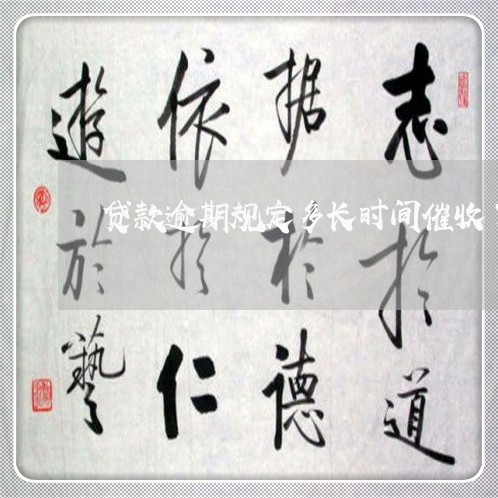 志於道
据於德
依於仁
遊於藝
贷款逾期规定多长时间催收